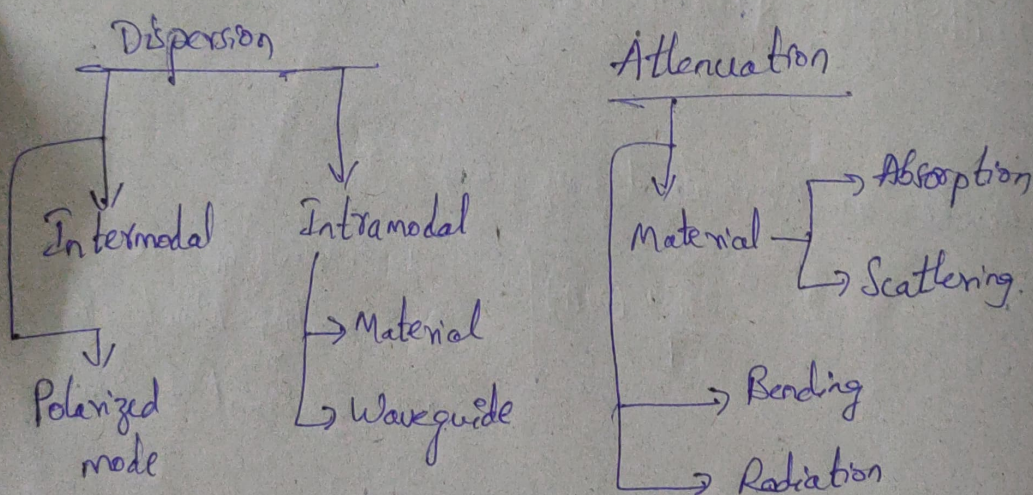 Dispersion
Intermodal
Intramodal
Material
Waveguide
Polarized
mode
Attenuation
Material
Absorption
Scattering.
Bending
Radiation